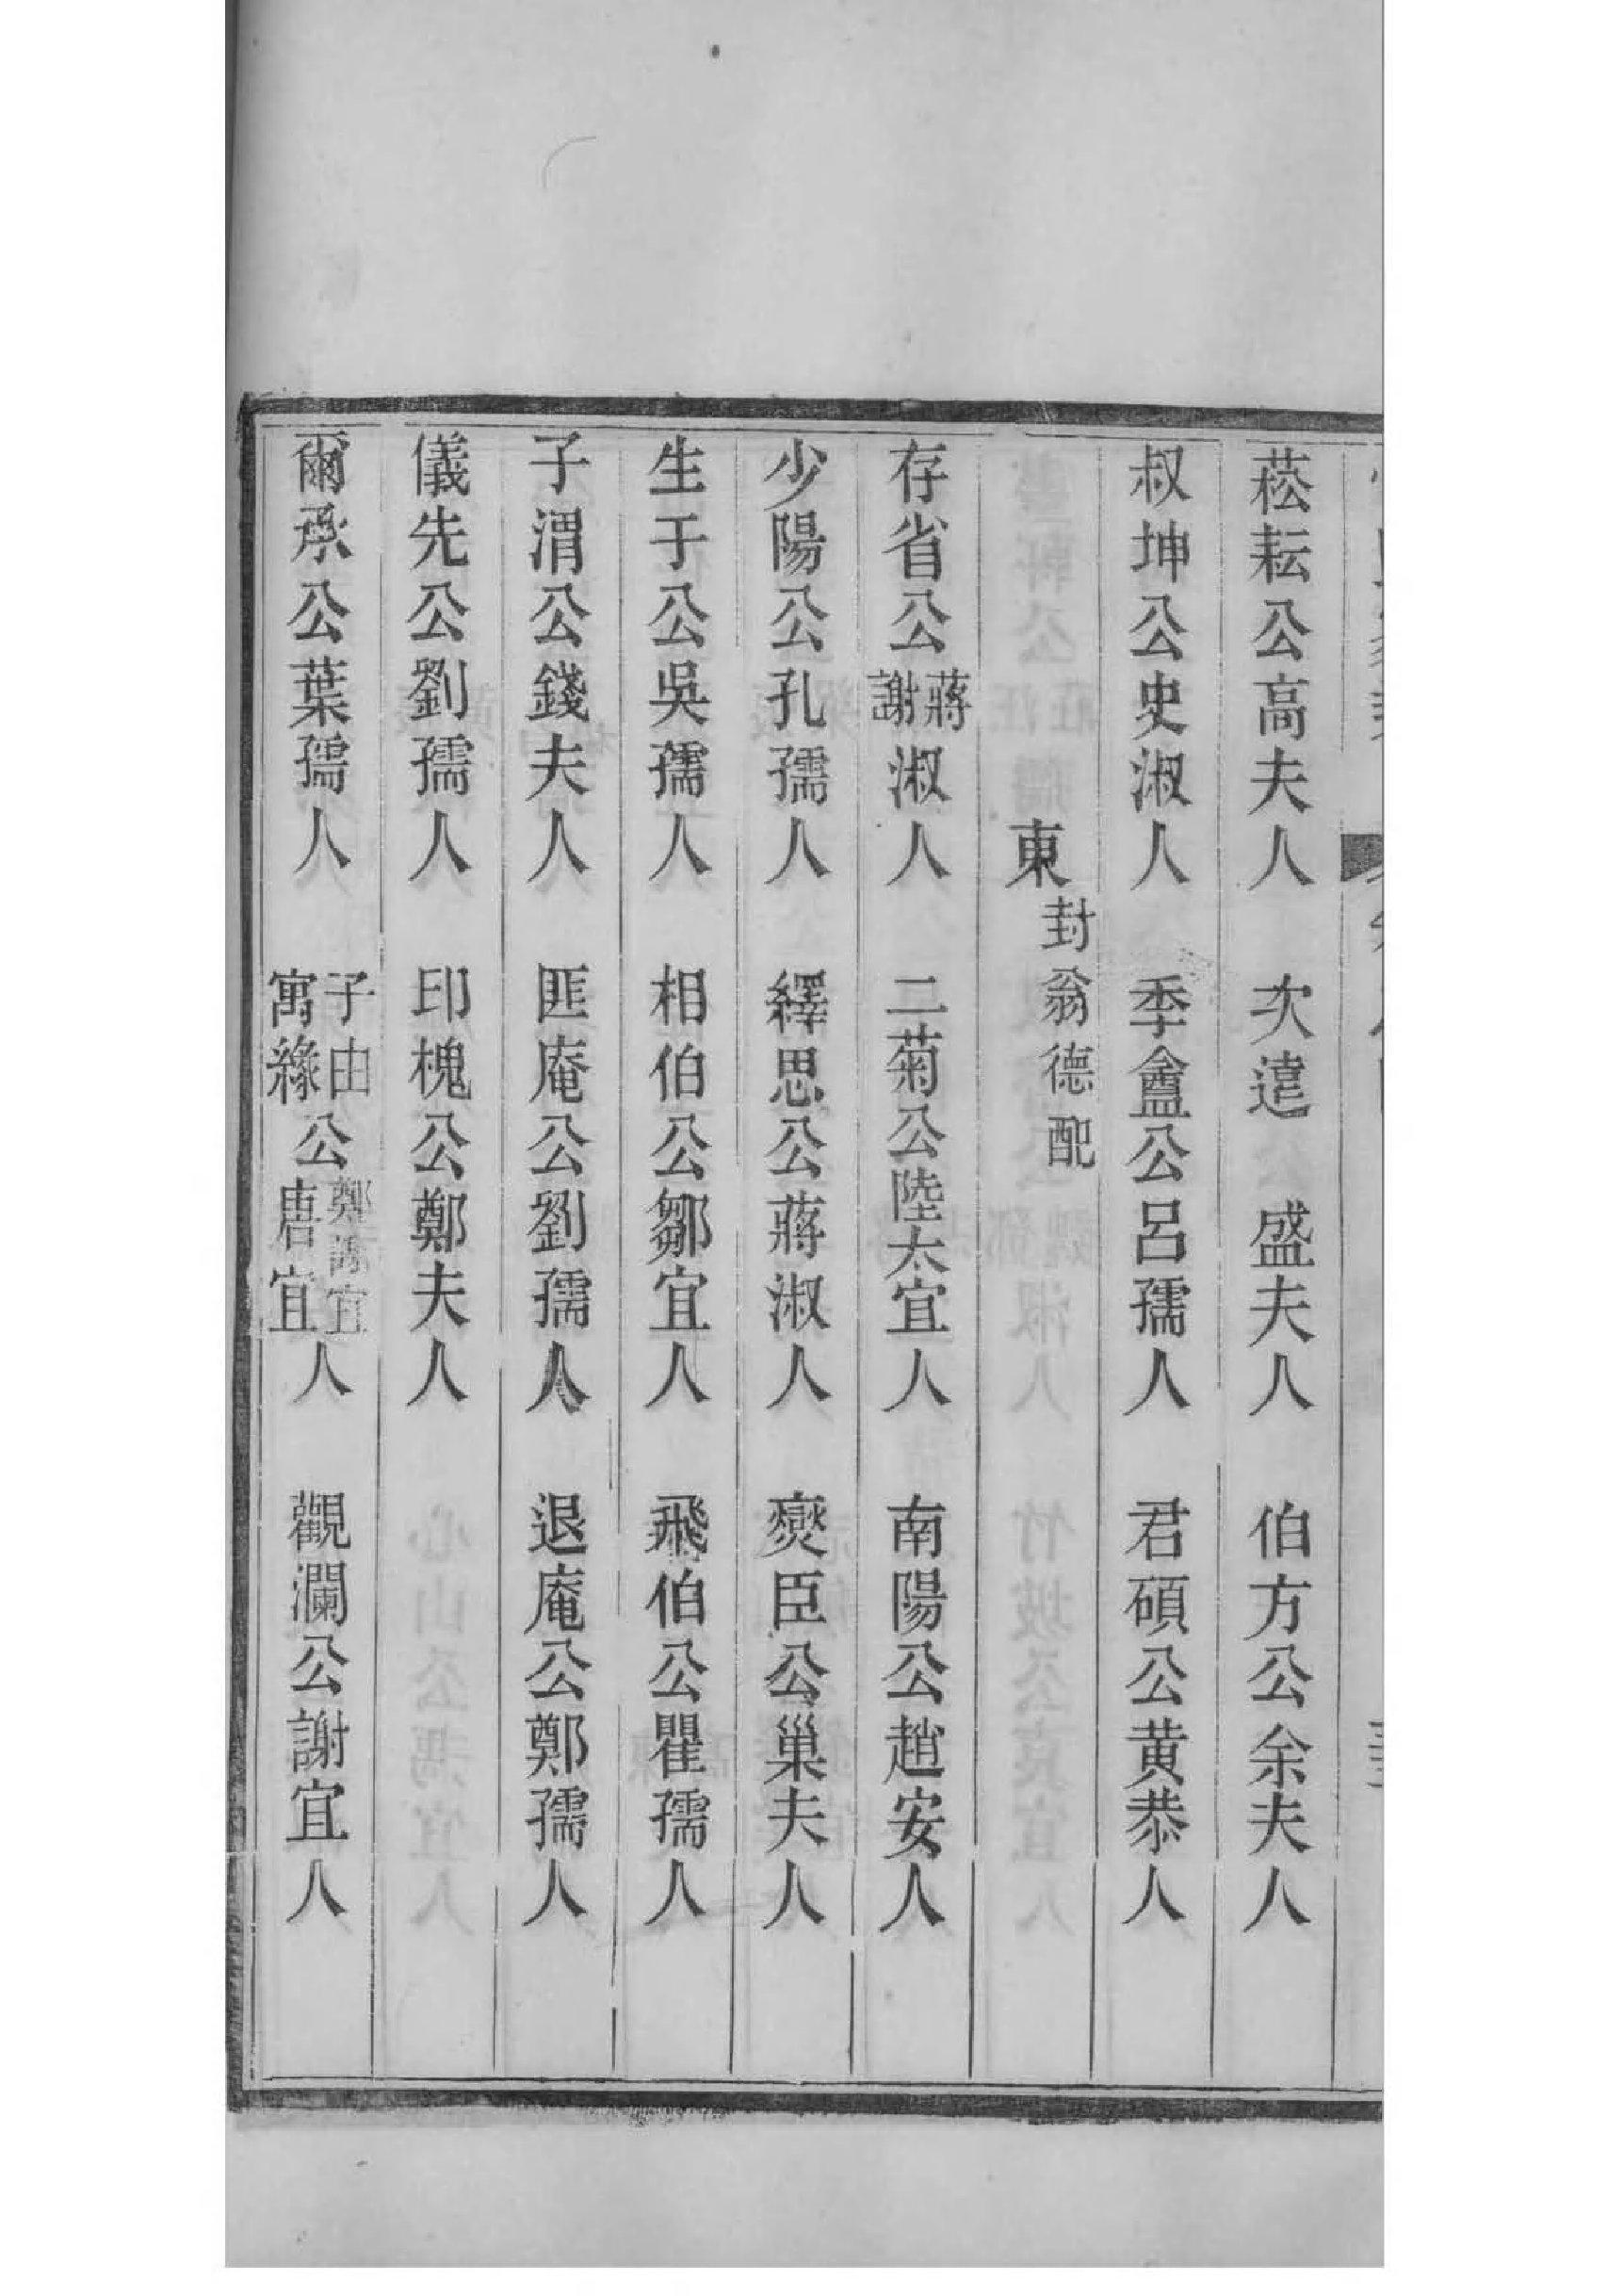 菘耘公高夫人　次遠　盛夫人　伯方公余夫人
叔坤公史淑人　季盦公呂孺人　君碩公黄恭人
東　封翁德配
存省公蔣謝淑人　二菊公陸太宜人　南陽公趙安人
少陽公孔孺人　繹思公蔣淑人　爕臣公巢夫人
生于公吳孺人　相伯公鄒宜人　飛伯公瞿孺人
子渭公錢夫人　匪庵公劉孺人　退庵公鄭孺人
儀先公劉孺人　印槐公鄭夫人
爾承公葉孺人　子由寓緣公鄭宜唐宜人　觀瀾公謝宜人